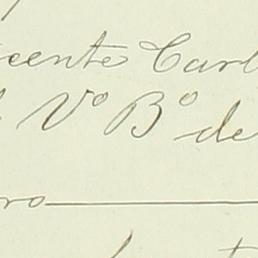 cente Carl
Vº Bº de
ro